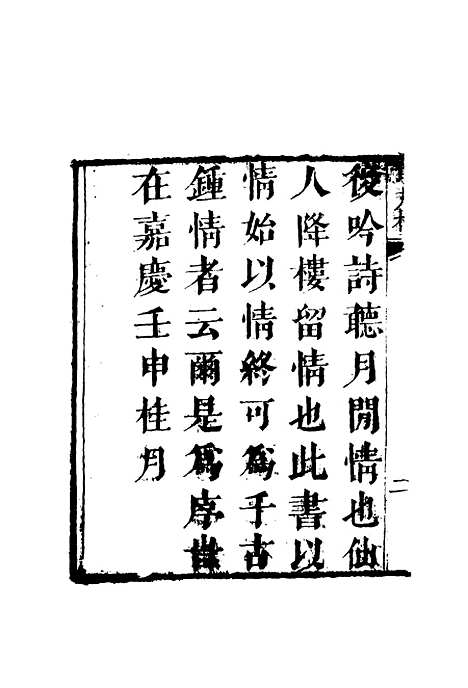 後吟詩聽月閒情也仙
人降樓留情也此書以
情始以情終可為千古
鍾情者云爾是為序時
在嘉慶壬申桂月
二